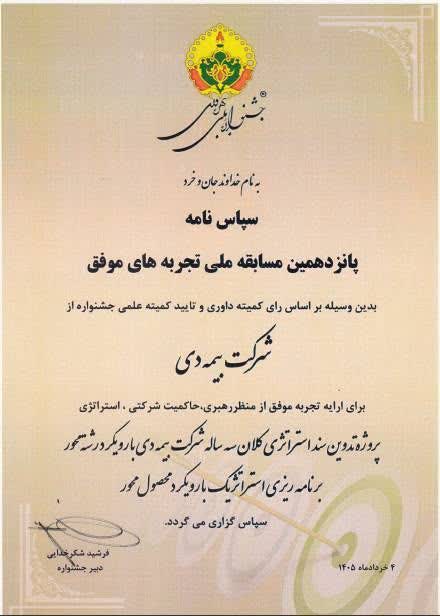 جشنواره ملی بهره‌وری
به نام خداوند جان و خرد
سپاس نامه
پانزدهمین مسابقه ملی تجربه های موفق
بدین وسیله بر اساس رای کمیته داوری و تایید کمیته علمی جشنواره از
شرکت بیمه دی
برای ارایه تجربه موفق از منظر رهبری، حاکمیت شرکتی ، استراتژی
پروژه تدوین سند استراتژی کلان سه ساله شرکت بیمه دی با رویکرد رشته محور
برنامه ریزی استراتژیک با رویکرد محصول محور
سپاس گزاری می گردد.
فرشید شکرخدایی
دبیر جشنواره
۴ خردادماه ۱۴۰۵